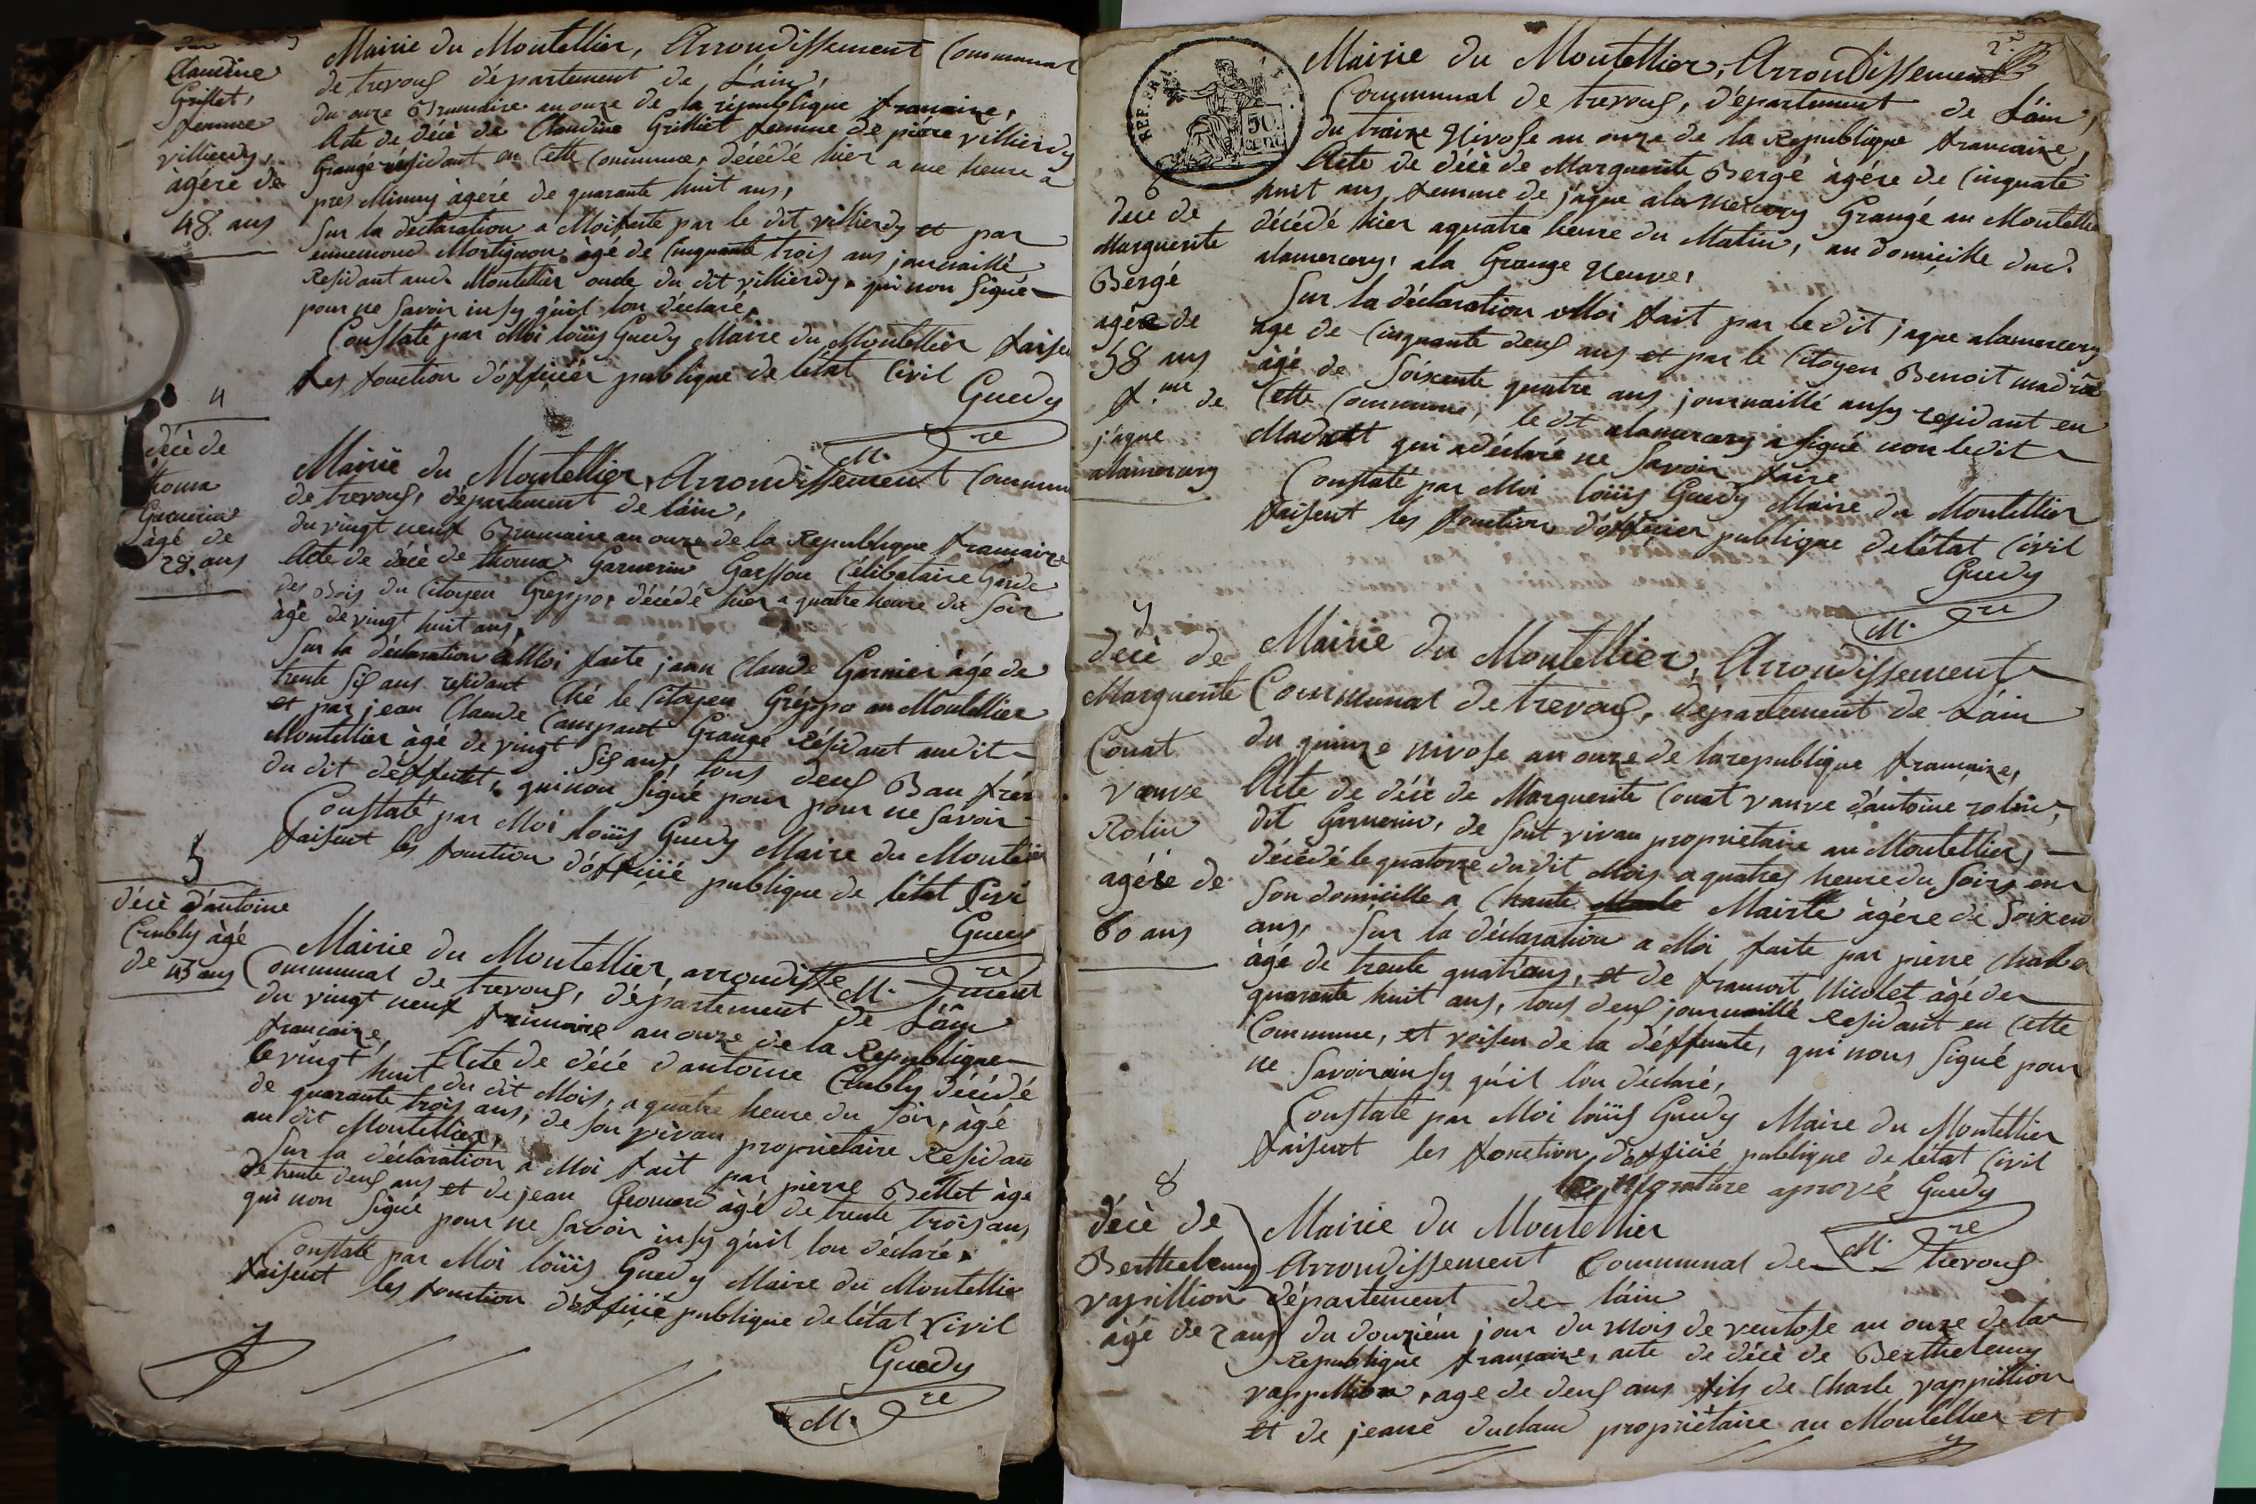 Claudine
Grillet,
femme
villierdy,
àgéré de
48 ans
Mairie du Montellier, Arrondissement Communal
de trevous département de Láin,
du onze Brumaire an onze de la république francaire,
Acte de décè de Claudine Grilliet femme de piére villierdy
Grangé résidant en Cette Commune, décédé hier a une heure a
pres Minuy àgeré de quarante huit ans,
Sur la declaration a Moi faite par le dit villierdy et par
ennemond Mortignon àgé de Cinquante trois ans journaillé
Residant aud. Montellier oncle du dit villierdy, qui non Signé
pour ne Savoir insy quil lon déclaré,
Constaté par Moi loüis Guedy Maire du Montellier faisen
les fonction d'officiér publique de létat Civil
Guedy
M. re
4
décè de
thoma
Garnerin
àgé de
28. ans
Mairie du Montellier, Arrondissement Commun
de trevous, département de láin,
du vingt neuf Brumaire an onze de la Republique francaire
Acte de décè de thoma Garnerin Garsson Célibataire Garde
des Bois du Citoyen Greppo, décédé hier a quatre heure du Soir
àgé de vingt huit ans,
Sur la déclaration a Moi faite jean Claude Garnier àgé de
trente Sis ans residant ché le Citoyen Gréppo au Montellier
et par jean Claude Campant Grangé Residant audit
Montellier àgé de vingt Sis ans tous deus Bau frér
du dit déffunt, qui non Signé pour pour ne Savoir
Constaté par Moi loüis Guedy Maire du Montellier
faisent les fonction d'officié publique de létat Civi
Guedy
M. re
5
décè d'antoine
Crubly àgé
de 43 ans
Mairie du Montellier arrondisse ment
Communal de trevous, département de Láin
du vingt neuf frimaire an onze de la Republique
francaire, Acte de décé d'antoine Crubly décédé
le vingt huit du dit Mois, a quatre heure du Soir, àgé
de quarante trois ans, de Son vivan propriétaire Residan
au dit Montellier,
Sur la déclaration a Moi fait par pierre Bellet àgé
de trente deus ans et de jean Geomard àgé de trente trois ans
qui non Signé pour ne Savoir insy quil lon déclaré,
Constaté par Moi loüis Guedy Maire du Montellier
faisent les fonction d'officié publique de létat Civil
Guedy
M. re
REP. FRA.
50
CENT.
6
decè de
Marguerite
Bergé
agéré de
58 ans
f.me de
jáque
alamercery
Mairie du Montellier, Arrondissement
Communal de trevous, département de Láin,
du traize Nivose an onze de la Republique francaire,
Acte de décè de Marguerite Bergé àgéré de Cinquate
huit ans, femme de jaque alamercery Grangé au Montellie
décédé hier a quatre heure du Matin, au domicille dud.
alamercery, ala Grange Neuve,
Sur la déclaration a Moi fait par le dit jaque alamercery
age de Cinquante deus ans et par le Citoyen Benoit
àgé de Soixente quatre ans journaillé ausy residant en
Cette Commune, le dit alamercery a signé non ledit
qui adéclaré ne Savoir faire
Constaté par Moi loüis Guedy Maire du Montellier
faisent les fonction d'officier publique de létat Civil
Guedy
M. re
7
décè de
Marguerite
Conat
vauve
Rolin
agéré de
60 ans
Mairie du Montellier, Arrondissement
Communal de trevous, département de Láin
du quinze nivose an onze de la republique francaire,
Acte de décè de Marguerite Conat vauve d'antoine rolin,
dit Garnerin, de Sont vivan propriétaire au Montellier,
décédé le quatorze du dit Mois a quatres heure du Soirs en
Son domicille a Chante Mairle àgéré de Soixen
ans, Sur la déclaration a Moi faite par pierre
àgé de trente quatr'ans, et de francoit Nicolet àgé de
quarante huit ans, tous deus journaillé Residant en Cette
Commune, et voisen de la déffunte, qui nous Signé pour
ne Savoir ainsy qu'il l'on déclaré,
Constaté par Moi loüis Guedy Maire du Montellier
faisent les fonction d'officié publique de létat Civil
signature aprové Guedy
M. re
8
décè de
Berthelemy
vapillion
àgé de 2 ans
Mairie du Montellier
Arrondissement Communal de trevous
département de láin
du douziém jour du Mois de ventose an onze de la
Republique francaire, acte de décè de Berthelemy
vappillion, age de deus ans fils de Charle vappillion
et de jeane duclaud propriètaire au Montellier et